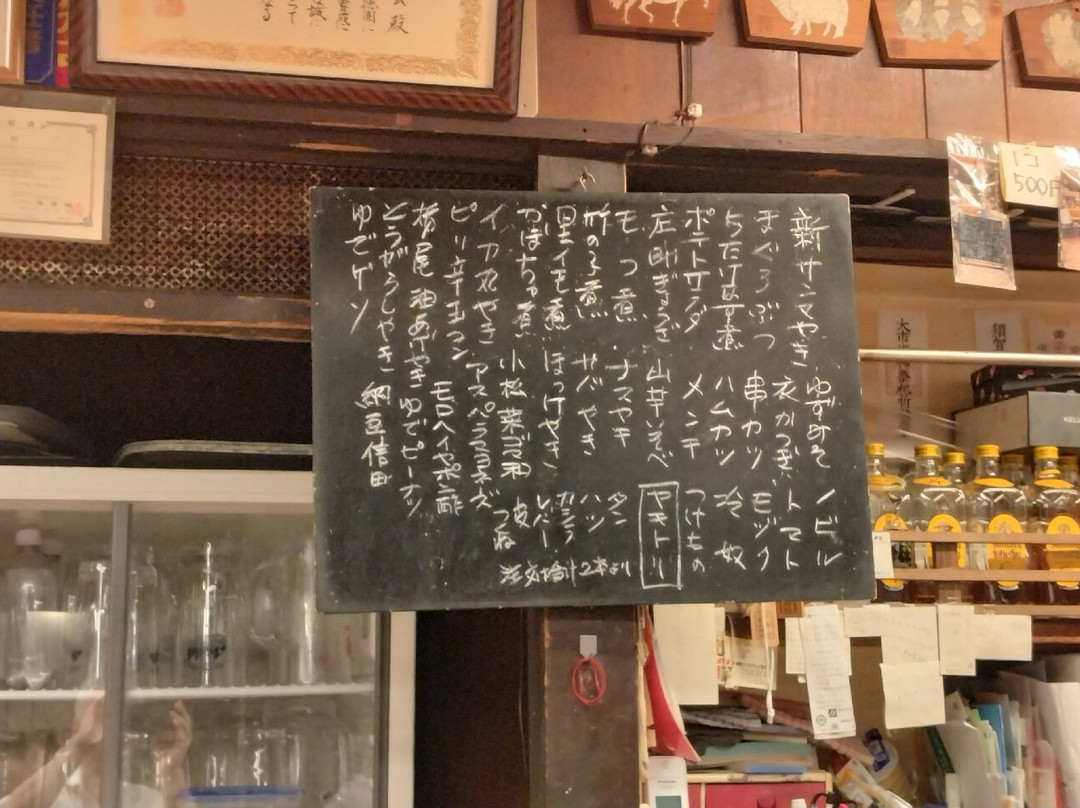 新サンマやき
まぐろぶつ
ポテトサラダ
庄助ぎょうざ
もつ煮
竹の子煮
里イモ煮
かぼちゃ煮
イカ丸やき
ピリ辛キュウリ
栃尾油あげやき
とうがらしやき
ゆでゲソ
ゆずみそ
衣かつぎ
串カツ
ハムカツ
メンチ
山芋いそべ
ナスヤキ
サバやき
ほっけやき
小松菜ゴマ油
アスパラマヨネーズ
モロヘイヤポン酢
ゆでピーナッツ
納豆信田
ノビル
トマト
モヅク
冷奴
つけもの
ヤキトリ
タン
ハツ
ガシラ
レバー
皮
つくね
注文合計2本より
1コ
500円